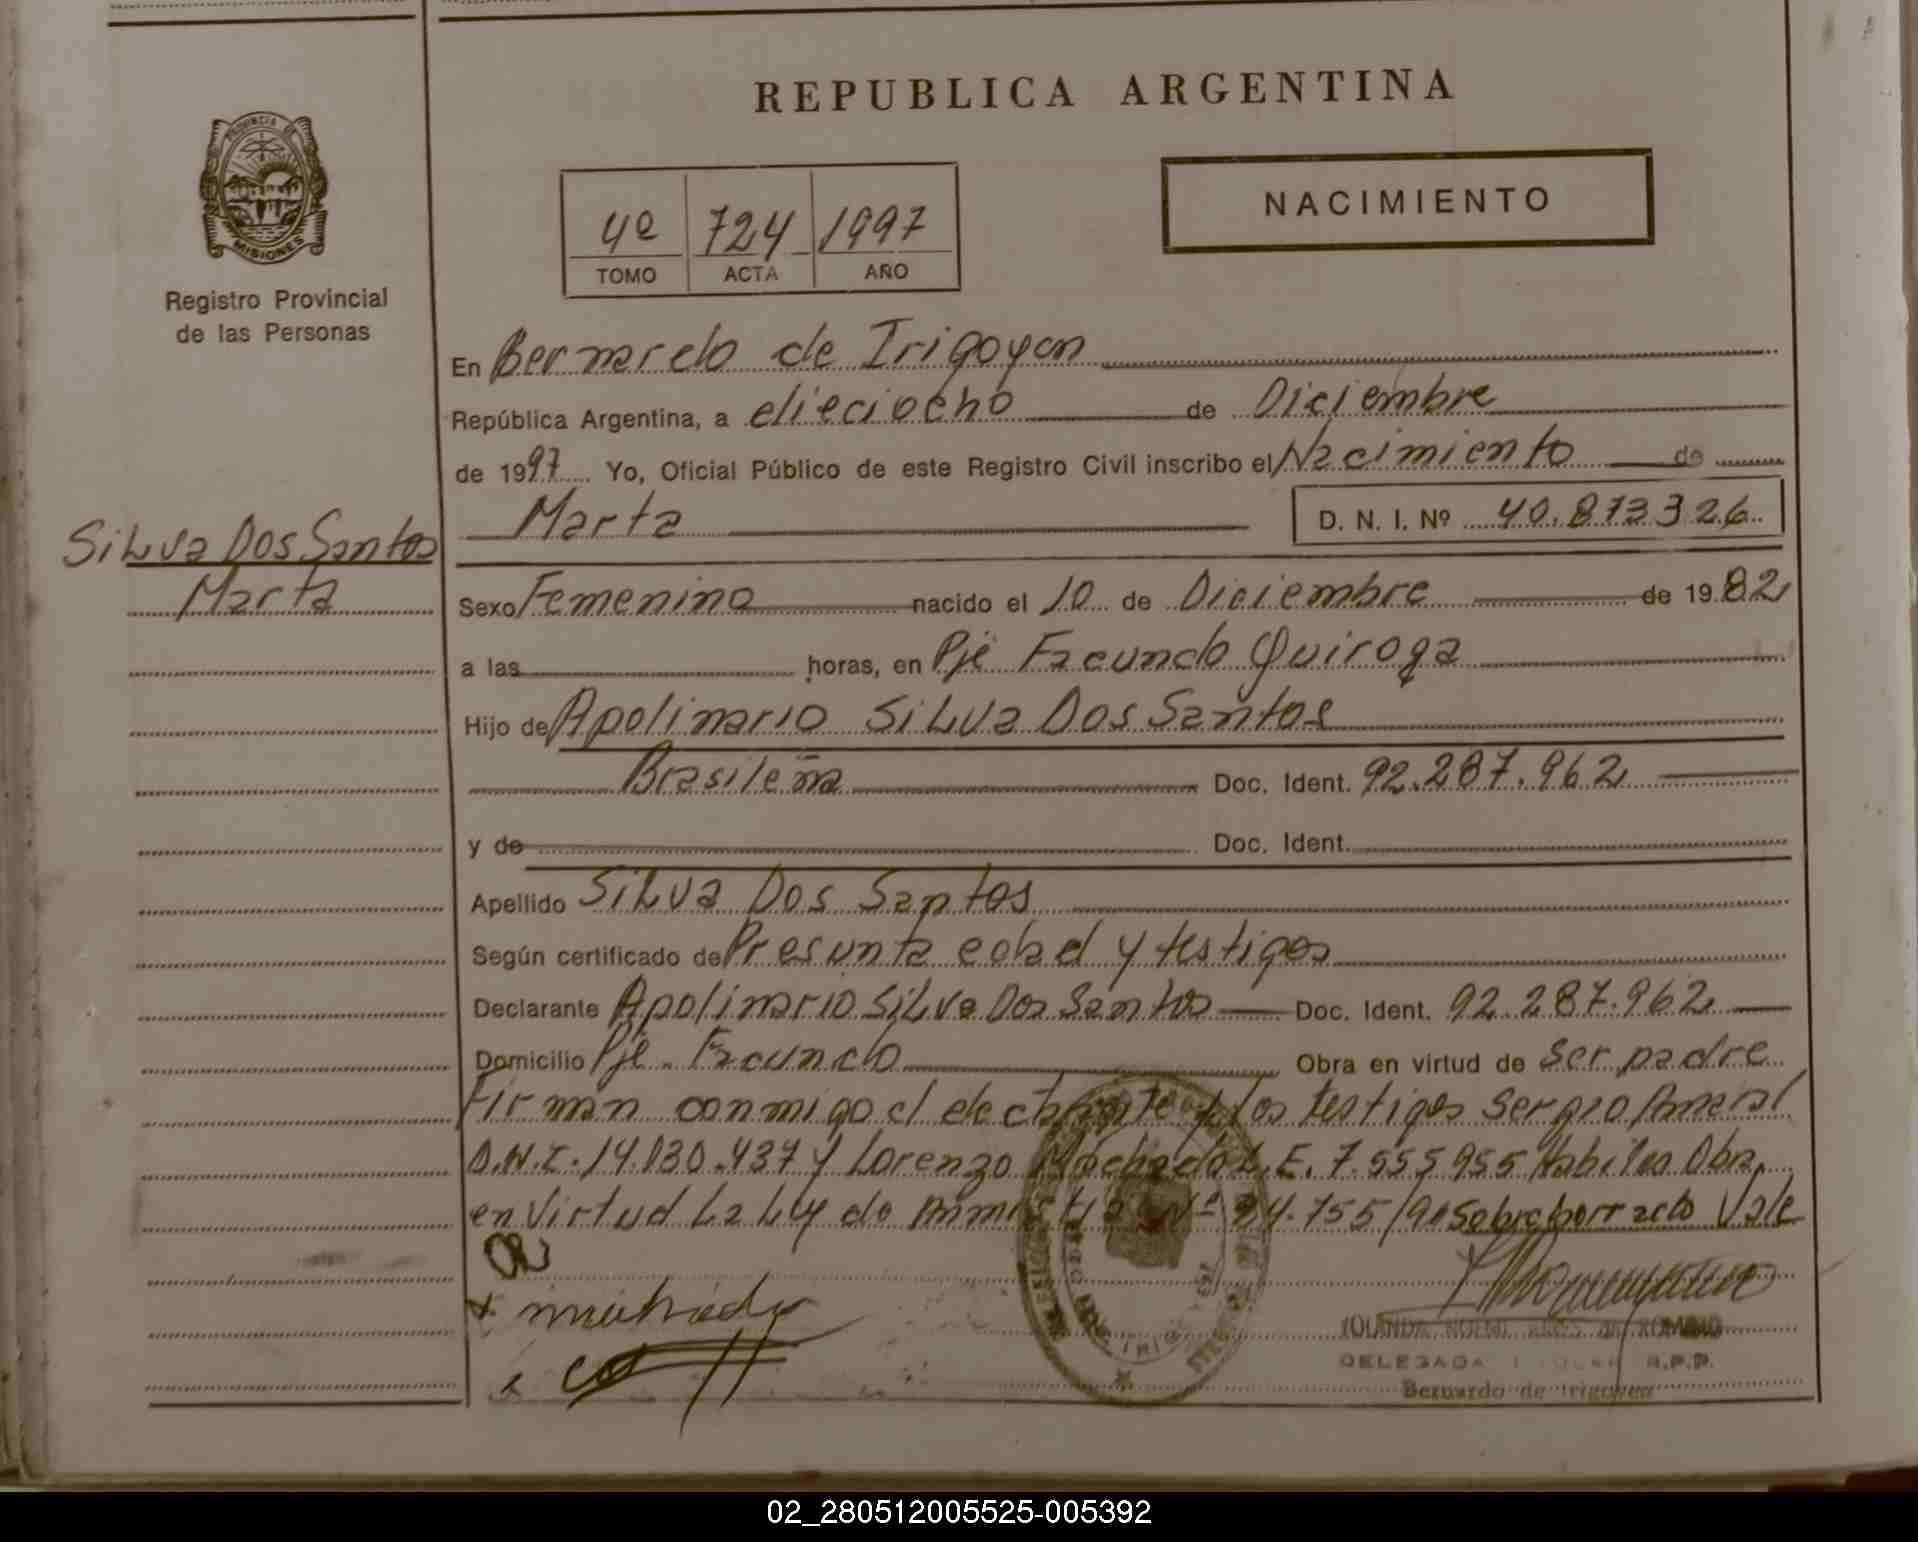 REPUBLICA ARGENTINA
PROVINCIA DE
MISIONES
Registro Provincial
de las Personas
NACIMIENTO
4º 724 1997
TOMO ACTA AÑO
En Bernardo de Irigoyen
República Argentina, a dieciocho de Diciembre
de 1997 Yo, Oficial Público de este Registro Civil inscribo el Nacimiento de
Marta D. N. I. Nº 40.873326
Silva Dos Santos
Marta
Sexo Femenino nacido el 10 de Diciembre de 1982
a las horas, en Pje Facundo Quiroga
Hijo de Apolinario Silva Dos Santos
Brasileña Doc. Ident. 92.287.962
y de Doc. Ident.
Apellido Silva Dos Santos
Según certificado de Presunta edad y testigos
Declarante Apolinario Silva Dos Santos Doc. Ident. 92.287.962
Domicilio Pje. Facundo Obra en virtud de ser padre
Firman conmigo el declarante y los testigos Sergio Amaral
D.N.I. 14.030.437 y Lorenzo Machado L.E. 7.555955 Habiles Obra
en Virtud La Ley de Amnistia Nº 24.755/9 Sobreborrado Vale
machado
DELEGADA R.P.P.
Bernardo de Irigoyen
02_280512005525-005392